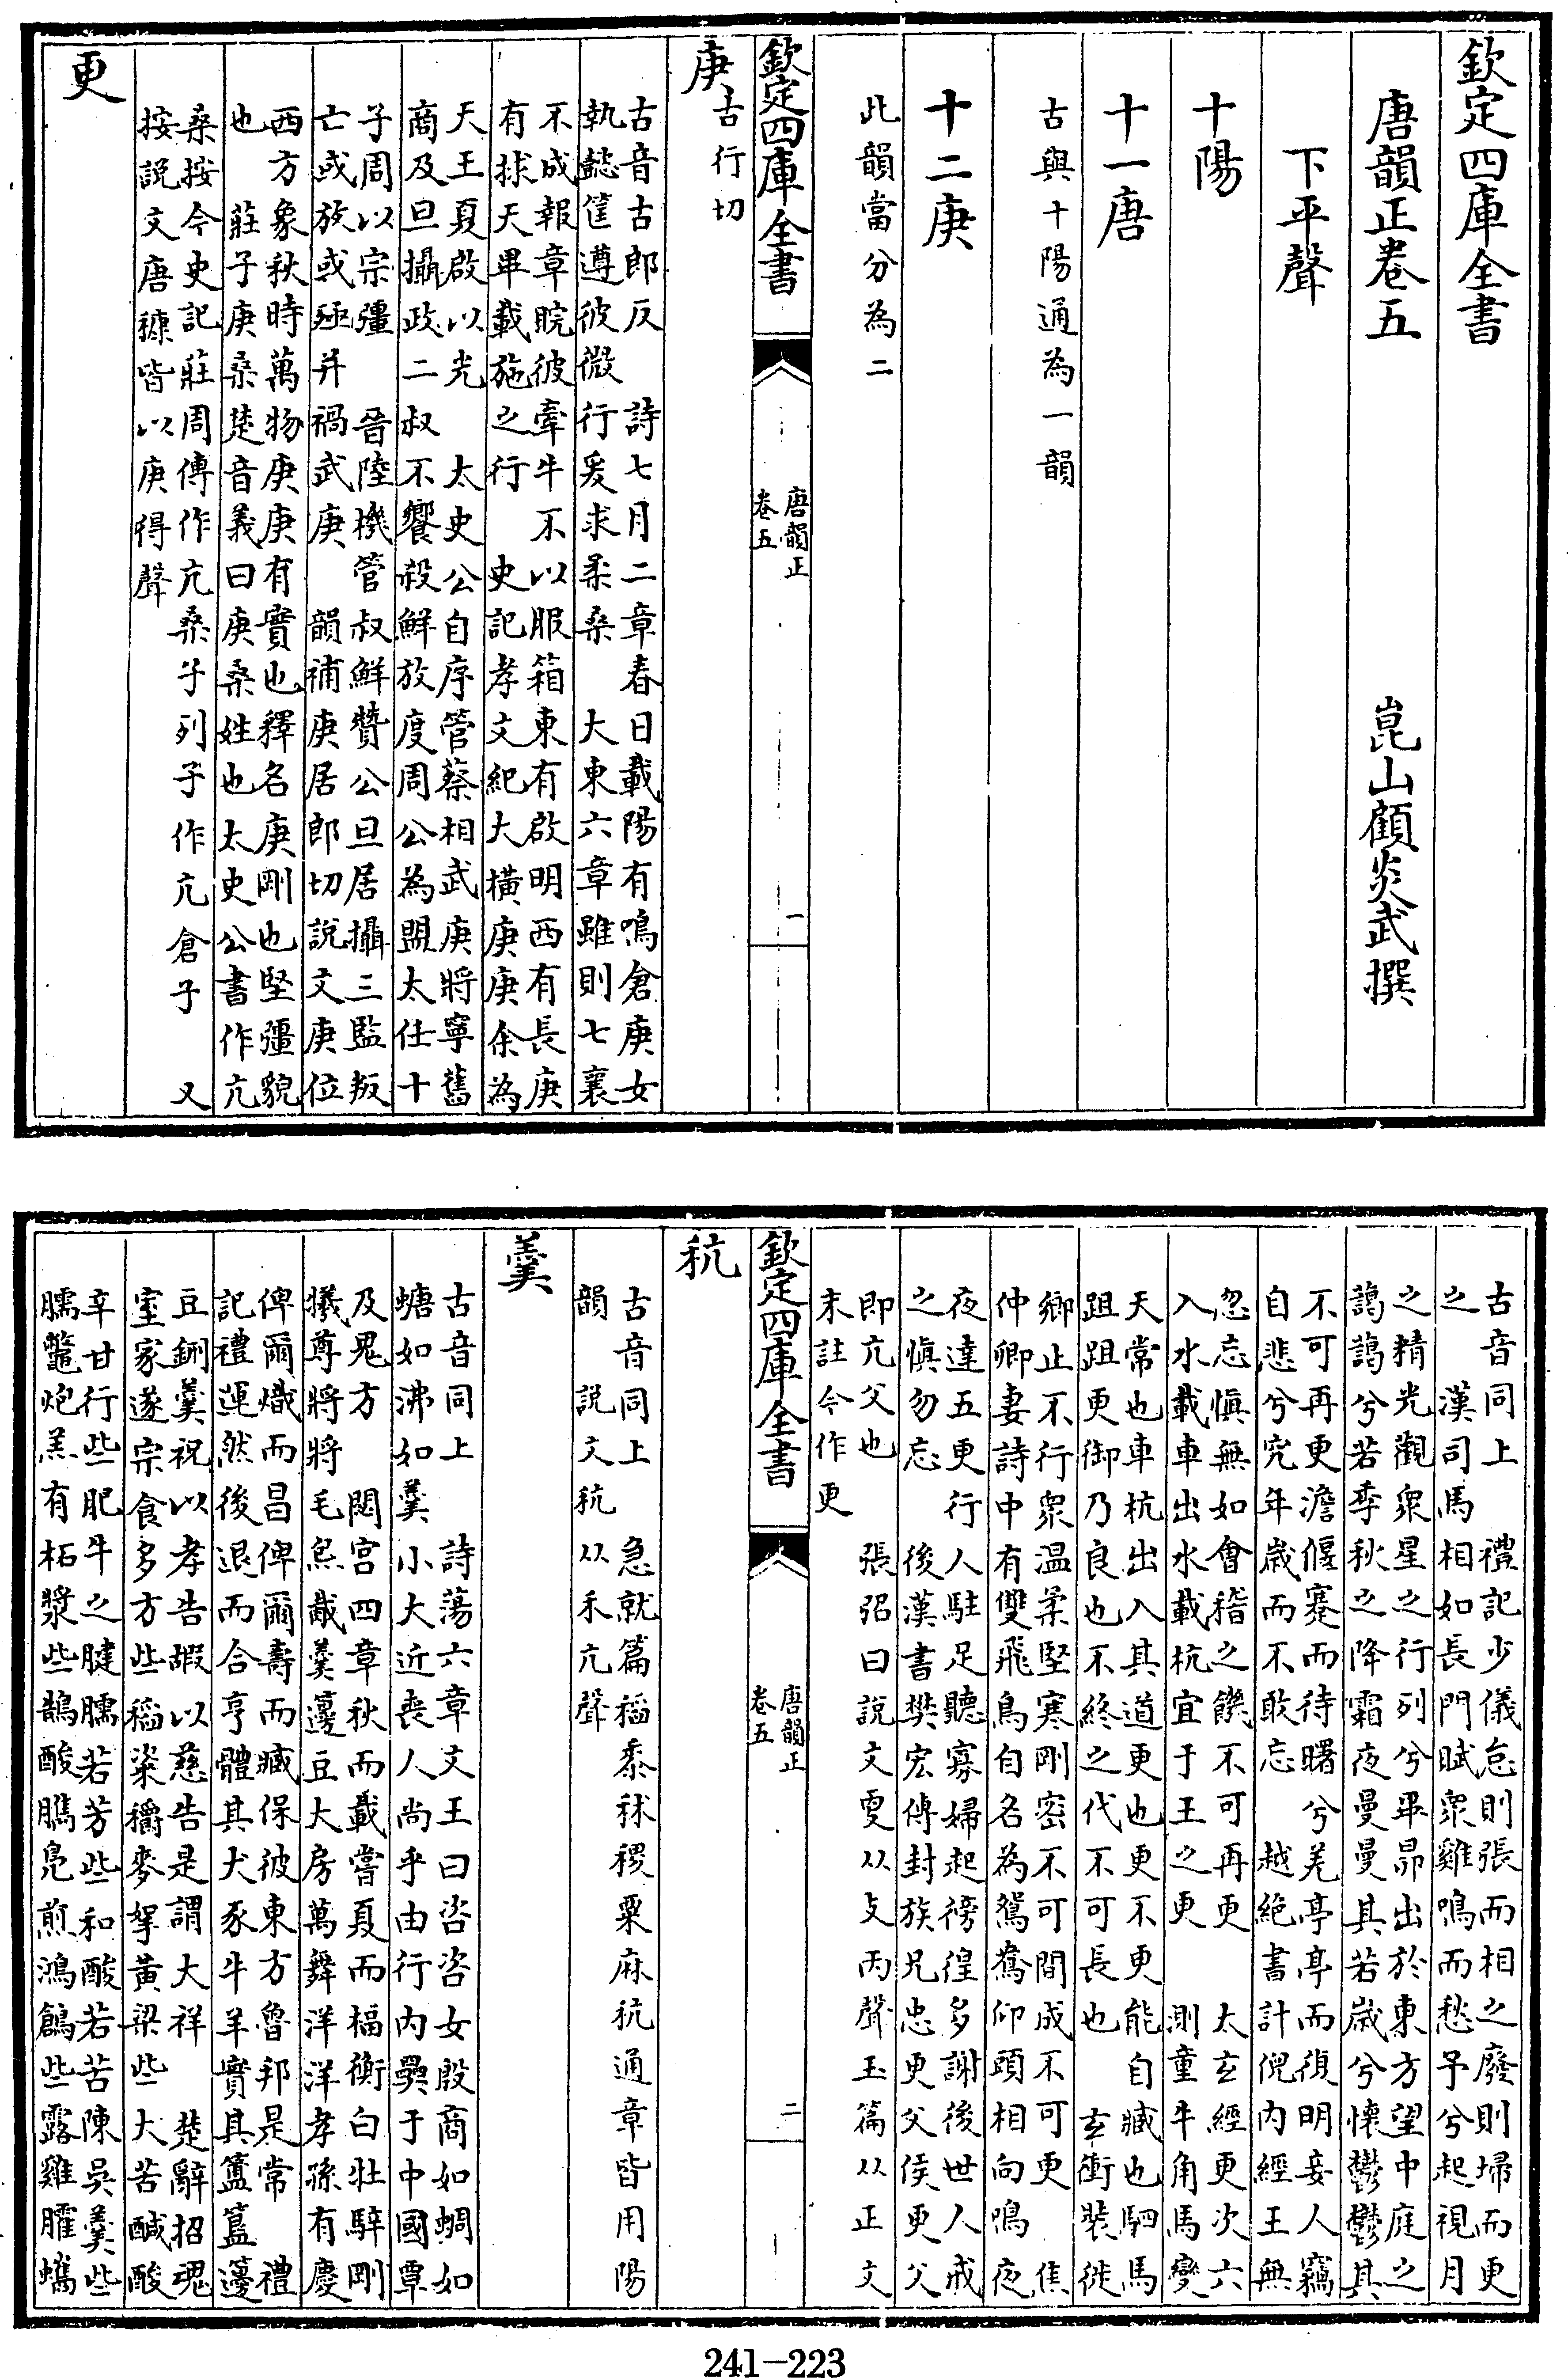 欽定四庫全書
唐韻正卷五
崑山顧炎武撰
下平聲
十陽
十一唐
古與十陽通為一韻
十二庚
此韻當分為二
欽定四庫全書
唐韻正
卷五
一
庚
古行切
古音古郎反 詩七月二章春日載陽有鳴倉庚女
執懿筐遵彼微行爰求柔桑 大東六章雖則七襄
不成報章睆彼牽牛不以服箱東有啟明西有長庚
有捄天畢載施之行 史記孝文紀大橫庚庚余為
天王夏啟以光 太史公自序管蔡相武庚將寧舊
商及旦攝政二叔不饗殺鮮放度周公為盟太任十
子周以宗彊 晉陸機管叔鮮贊公旦居攝三監叛
亡或放或殛并禍武庚 韻補庚居郎切說文庚位
西方象秋時萬物庚庚有實也釋名庚剛也堅彊貌
也 莊子庚桑楚音義曰庚桑姓也太史公書作亢
桑按今史記莊周傳作亢桑子列子作亢倉子 又
按說文唐穅皆以庚得聲
更
古音同上 禮記少儀怠則張而相之廢則埽而更
之 漢司馬相如長門賦眾雞鳴而愁予兮起視月
之精光觀眾星之行列兮畢昴出於東方望中庭之
藹藹兮若季秋之降霜夜曼曼其若歲兮懷鬱鬱其
不可再更澹偃蹇而待曙兮荒亭亭而復明妾人竊
自悲兮究年歲而不敢忘 越絕書計倪內經王無
忽忘慎無如會稽之饑不可再更 太玄經更次六
入水載車出水載杭宜于王之更 測童牛角馬變
天常也車杭出入其道更也更不更能自臧也駟馬
跙跙更御乃良也不終之代不可長也 玄衝裝徙
鄉止不行眾溫柔堅寒剛密不可間成不可更 焦
仲卿妻詩中有雙飛鳥自名為鴛鴦仰頭相向鳴夜
夜達五更行人駐足聽寡婦起徬徨多謝後世人戒
之慎勿忘 後漢書樊宏傳封族兄忠更父侯更父
即亢父也 張弨曰說文㪅从攴丙聲玉篇从正文
末註今作更
欽定四庫全書
唐韻正
卷五
二
秔
古音同上 急就篇稻黍秫稷粟麻秔通章皆用陽
韻 說文秔从禾亢聲
羹
古音同上 詩蕩六章文王曰咨咨女殷商如蜩如
螗如沸如羹小大近喪人尚乎由行內奰于中國覃
及鬼方 閟宮四章秋而載嘗夏而楅衡白牡騂剛
犧尊將將毛炰胾羹籩豆大房萬舞洋洋孝孫有慶
俾爾熾而昌俾爾壽而臧保彼東方魯邦是常 禮
記禮運然後退而合亨體其犬豕牛羊實其簠簋籩
豆鉶羹祝以孝告嘏以慈告是謂大祥 楚辭招魂
室家遂宗食多方些稻粢穱麥挐黃粱些大苦醎酸
辛甘行些肥牛之腱臑若芳些和酸若苦陳吳羹些
臑鼈炮羔有柘漿些鵠酸臇鳧煎鴻鶬些露雞臛蠵
241-223